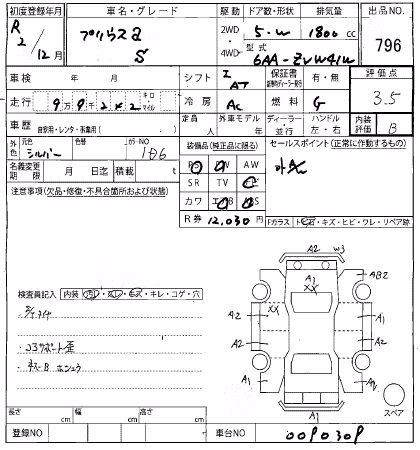 初度登録年月 車名・グレード 駆動 ドア数・形状 排気量 出品NO.
R2/12月 プリウスα S 2WD 4WD 5-W 1800cc 796
型式 6AA-ZVW41W
車検 年 月 シフト I AT 保証書 有・無 評価点
走行 9万9千2×2 キロ マイル 冷房 AC 燃料 G 3.5
車歴 自家用・レンタ・事業用( ) 定員 人 外車モデル 年 ディーラー 並行 ハンドル 左・右 内装評価 B
外色 元色 シルバー 色替 カラーNO 1D6 装備品(純正品に限る) セールスポイント(正常に作動するもの)
名義変更期限 月 日迄 積載 t PS PW AW
SR TV ナビ
カワ エアB ABS
注意事項(欠品・修復・不具合箇所および状態) R券 12,030円
Fガラス トビ石・キズ・ヒビ・ワレ・リペア跡
A2 W3
A1
XX
AB2
A2 XX A1
A2 A2
A1 A1
検査員記入 内装 汚レ・スレ・キズ・キレ・コゲ・穴
・コアサポート歪
スペア
長さ cm 幅 cm 高さ cm
登録NO 車台NO 0090309